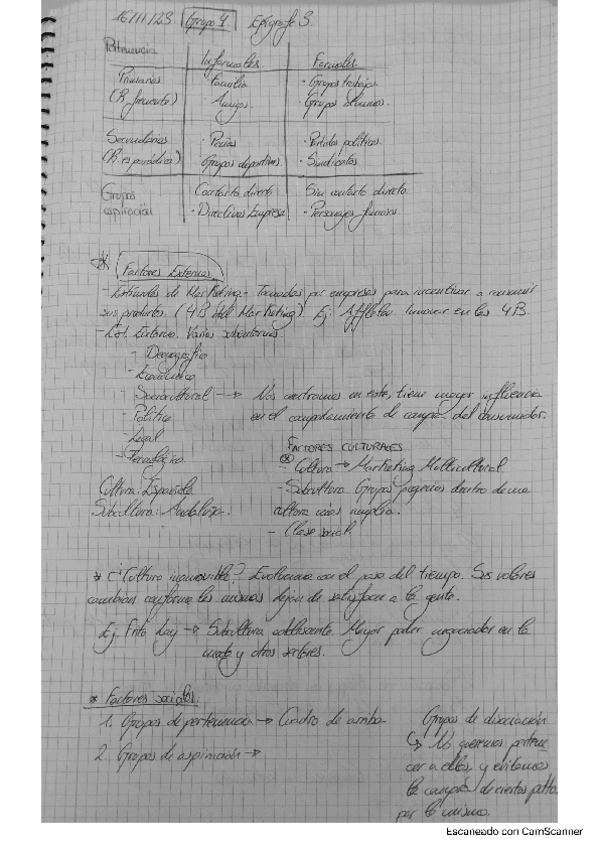 16/11/23 Grupo 4. Epígrafe 3.
Pertenencia
Informales Formales
Primarios · Familia · Grupos trabajo
(R frecuente) · Amigos · Grupos
Secundarios · Peñas · Partidos políticos
(R esporádica) Grupos deportivos. · Sindicatos
Grupos Contacto directo Sin contacto directo
aspiración · Directivos Empresa · Personajes famosos
* Factores Externos
- Estímulos de Marketing - Tomadas por empresas para incentivar a consumir
sus productos. (4P del Marketing). Ej: innovar en las 4P.
- Est. Entorno. Varios subentornos
- Demográfico
- Económico
- Sociocultural → Nos centramos en este, tiene mayor influencia
en el comportamiento de compra del consumidor.
- Político
- Legal
- Tecnológico.
FACTORES CULTURALES
- Cultura → Marketing Multicultural
- Subcultura. Grupos pequeños dentro de una
cultura más amplia.
- Clase social.
Cultura: Española
Subcultura: Andaluza.
* ¿Cultura inamovible? Evoluciona con el paso del tiempo. Sus valores
cambian conforme los mismos dejan de satisfacer a la gente.
Ej. Frito Lay → Subcultura adolescente. Mayor poder en la
y otros sectores.
* Factores sociales:
1. Grupos de pertenencia → Cuadro de arriba
2. Grupos de aspiración →
Grupos de disociación
↳ No queremos pertene-
cer a ellos y evitamos
la compra de ciertos
por lo mismo.
Escaneado con CamScanner